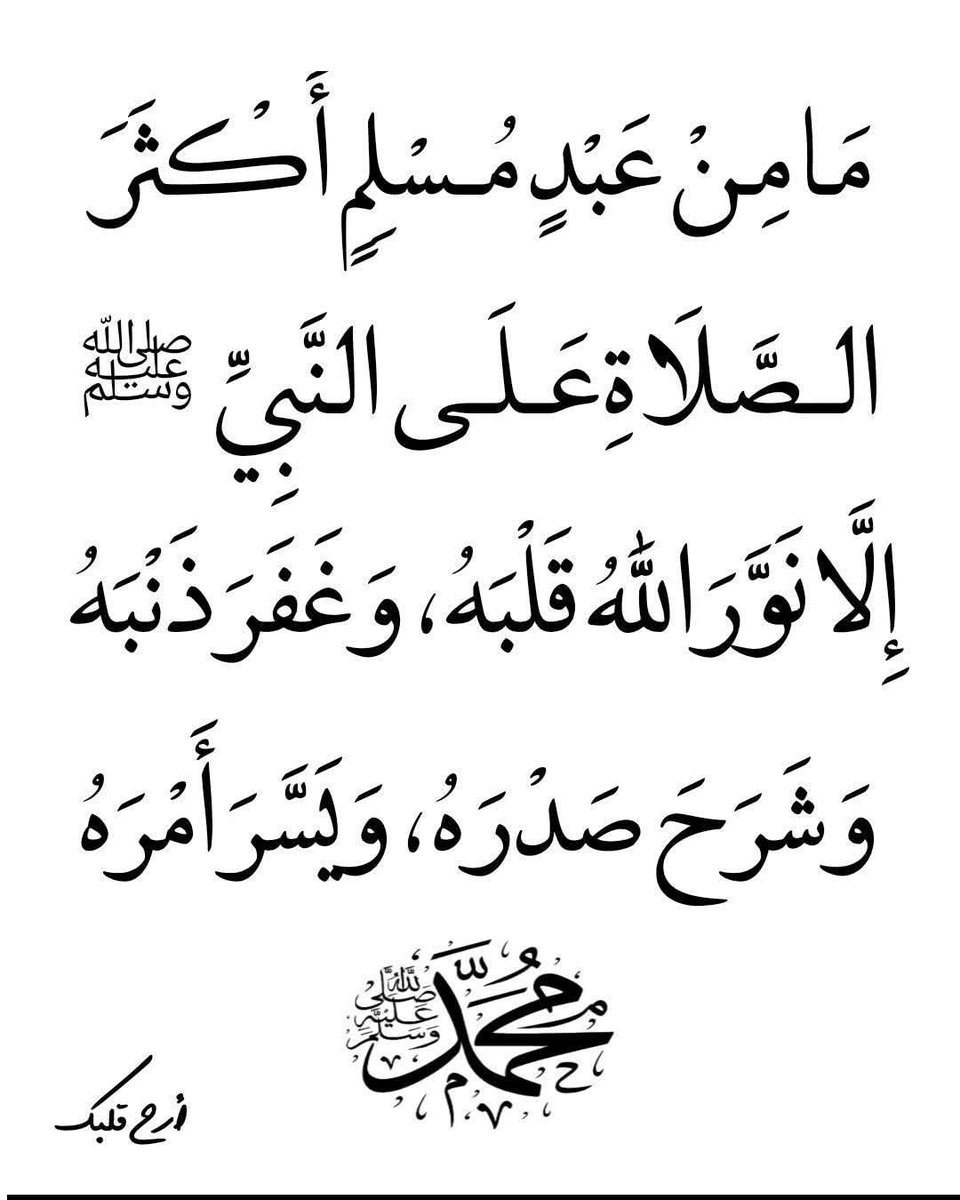 مَا مِنْ عَبْدٍ مُسْلِمٍ أَكْثَرَ
الصَّلَاةِ عَلَى النَّبِيِّ ﷺ
إِلَّا نَوَّرَ اللَّهُ قَلْبَهُ، وَغَفَرَ ذَنْبَهُ
وَشَرَحَ صَدْرَهُ، وَيَسَّرَ أَمْرَهُ
مُحَمَّد ﷺ
أرح قلبك